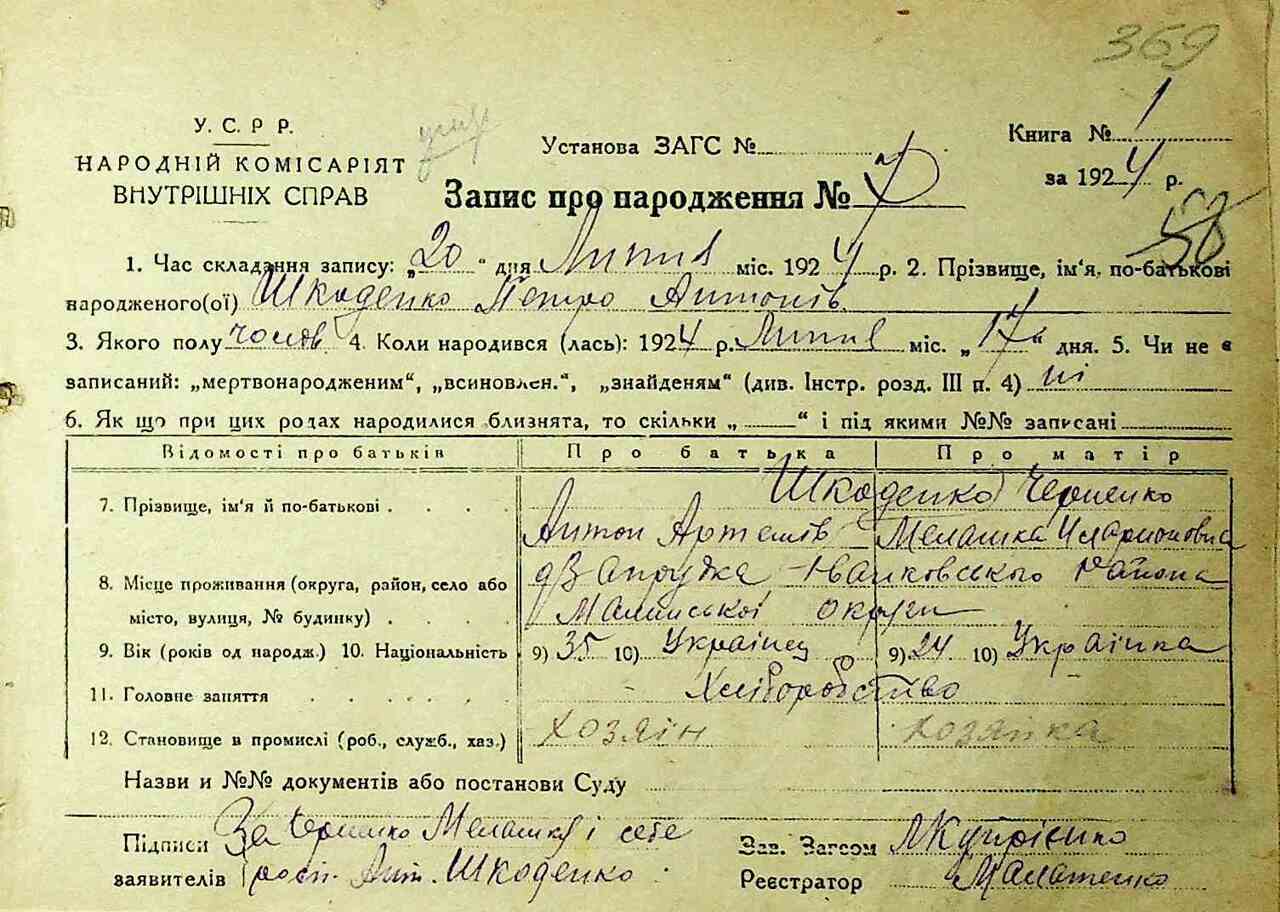 369
У. С. Р Р.
НАРОДНІЙ КОМІСАРІЯТ
ВНУТРІШНІХ СПРАВ
Установа ЗАГС №
Книга № 1
за 1924 р.
Запис про народження № 7
58
1. Час складання запису: „20“ дня Липня міс. 1924 р. 2. Прізвище, ім'я, по-батькові
народженого(ої) Шкоденко Петро Антонів
3. Якого полу чолов. 4. Коли народився (лась): 1924 р. Липня міс. „17“ дня. 5. Чи не є
записаний: „мертвонародженим“, „всиновлен.“, „знайденям“ (див. Інстр. розд. III п. 4) ні
6. Як що при цих родах народилися близнята, то скільки „ “ і під якими №№ записані
Відомості про батьків Про батька Про матір
7. Прізвище, ім'я й по-батькові Шкоденко Черненко
Антон Артемів Мелашка Иларионовна
8. Місце проживання (округа, район, село або д Запрудка Іванковського района
місто, вулиця, № будинку) Малинської округи
9. Вік (років од народж.) 10. Національність 9) 35 10) Українец 9) 24 10) Українка
11. Головне заняття Хліборобство
12. Становище в промислі (роб., служб., хаз.) хозяін хозяйка
Назви и №№ документів або постанови Суду
Підписи За Черненко Мелашку і себе
заявителів росп. Ант. Шкоденко
Зав. Загсом Купрієнко
Реєстратор